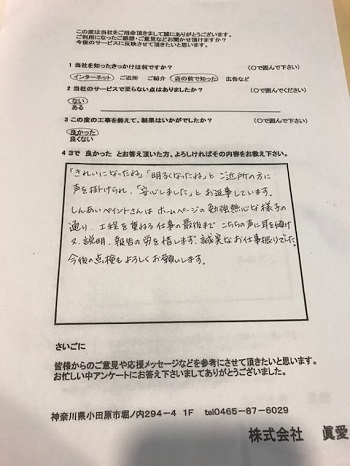 この度は当社をご用命頂きまして誠にありがとうございます。
ご利用になったご感想・ご意見などお聞かせ頂けますか?
今後のサービスに反映させて頂きたいと思います。
1 当社を知ったきっかけは何ですか? (〇で囲んで下さい)
インターネット ご近所 ご紹介 店の前で知った 広告など
2 当社のサービスで至らない点はありましたか? (〇で囲んでください)
ない
ある
3 この度の工事を終えて、結果はいかがでしたか? (〇で囲んで下さい)
良かった
良くない
4 3で 良かった とお答え頂いた方、よろしければその内容をお教え下さい。
「きれいになったね」「明るくなったね」と ご近所の方に
声を掛けられ、「安心しました」と お返事しています。
しんあいペイントさんは ホームページの 勉強熱心な様子の
通り、工程を重ねる仕事の最後まで こちらの声に耳を傾け
又、説明、報告の労を惜します。誠実なお仕事振りでした。
今後の点検もよろしくお願いします。
さいごに
皆様からのご意見や応援メッセージなどを参考にさせて頂きたいと思います。
お忙しい中アンケートにお答え下さいましてありがとうございました。
神奈川県小田原市堀ノ内294-4 1F tel0465-87-6029
株式会社 眞愛